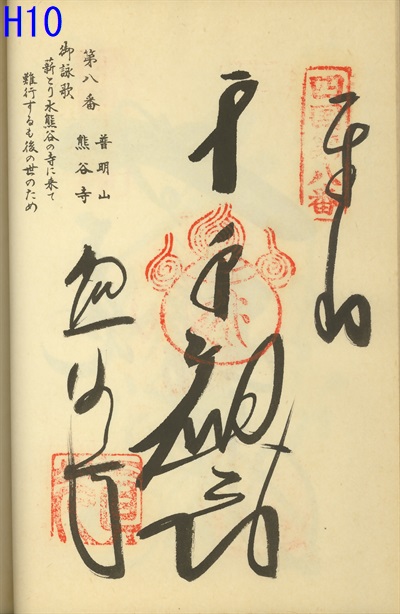 H10
四国第八番
奉納
千手観音
熊谷寺
第八番 普明山
熊谷寺
御詠歌
薪とり水熊谷の寺に来て
難行するも後の世のため